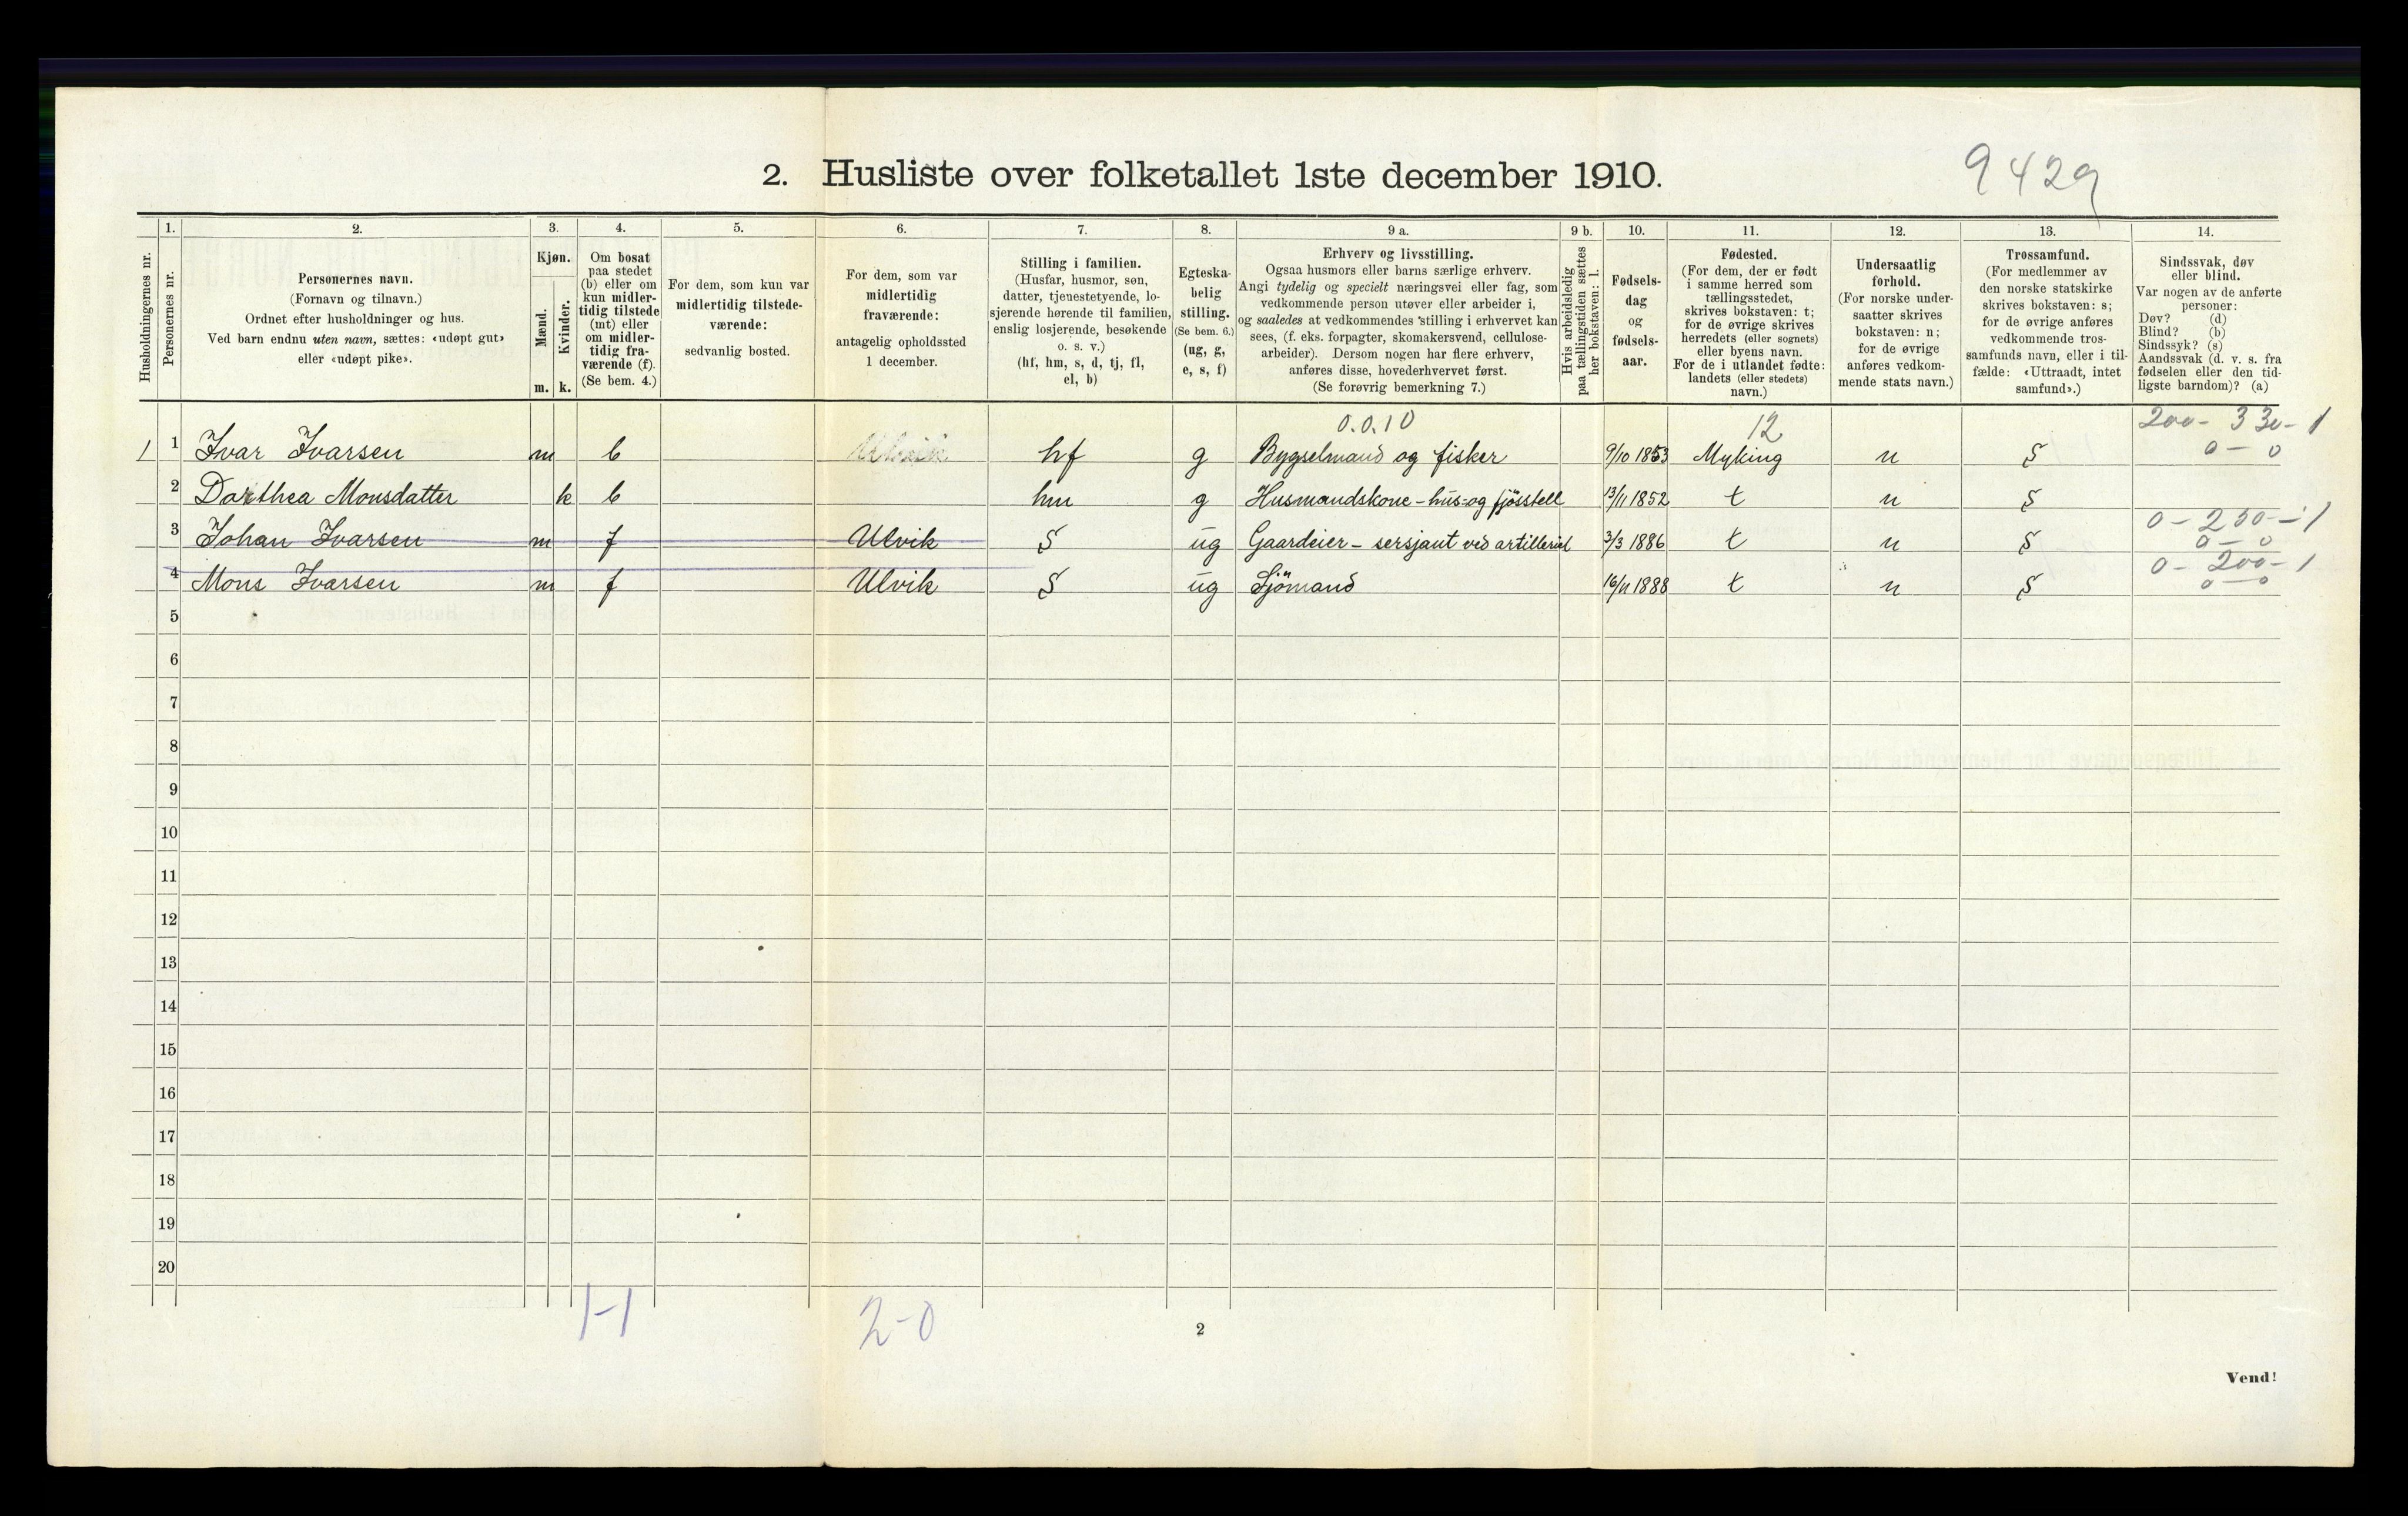 2. Husliste over folketallet 1ste december 1910.
9429
Husholdningernes nr.
1.
Personernes nr.
2.
Personernes navn.
(Fornavn og tilnavn.)
Ordnet efter husholdninger og hus.
Ved barn endnu uten navn, sættes: «udøpt gut»
eller «udøpt pike».
3.
Kjøn.
Mænd.
m.
Kvinder.
k.
4.
Om bosat
paa stedet
(b) eller om
kun midler-
tidig tilstede
(mt) eller
om midler-
tidig fra-
værende (f).
(Se bem. 4.)
5.
For dem, som kun var
midlertidig tilstede-
værende:
sedvanlig bosted.
6.
For dem, som var
midlertidig
fraværende:
antagelig opholdssted
1 december.
7.
Stilling i familien.
(Husfar, husmor, søn,
datter, tjenestetyende, lo-
sjerende hørende til familien,
enslig losjerende, besøkende
o. s. v.)
(hf, hm, s, d, tj, fl,
el, b)
8.
Egteska-
belig
stilling.
(Se bem. 6.)
(ug, g,
e, s, f)
9 a.
Erhverv og livsstilling.
Ogsaa husmors eller barns særlige erhverv.
Angi tydelig og specielt næringsvei eller fag, som
vedkommende person utøver eller arbeider i,
og saaledes at vedkommendes stilling i erhvervet kan
sees, (f. eks. forpagter, skomakersvend, cellulose-
arbeider). Dersom nogen har flere erhverv,
anføres disse, hovederhvervet først.
(Se forøvrig bemerkning 7.)
9 b.
Hvis arbeidsledig
paa tællingstiden sættes
her bokstaven: l.
10.
Fødsels-
dag
og
fødsels-
aar.
11.
Fødested.
(For dem, der er født
i samme herred som
tællingsstedet,
skrives bokstaven: t;
for de øvrige skrives
herredets (eller sognets)
eller byens navn.
For de i utlandet fødte:
landets (eller stedets)
navn.)
12.
Undersaatlig
forhold.
(For norske under-
saatter skrives
bokstaven: n;
for de øvrige
anføres vedkom-
mende stats navn.)
13.
Trossamfund.
(For medlemmer av
den norske statskirke
skrives bokstaven: s;
for de øvrige anføres
vedkommende tros-
samfunds navn, eller i til-
fælde: «Uttraadt, intet
samfund».)
14.
Sindssvak, døv
eller blind.
Var nogen av de anførte
personer:
Døv? (d)
Blind? (b)
Sindssyk? (s)
Aandssvak (d. v. s. fra
fødselen eller den tid-
ligste barndom)? (a)
0.0.10 12 200- 330-1
1 1 Ivar Ivarsen m b Ulvik hf g Bygselmand og fisker 9/10 1853 Myking n S 0-0
2 Dorthea Monsdatter k b hm g Husmandskone - hus- og fjösstell 13/11 1852 t n S
0-250-1
3 Johan Ivarsen m f Ulvik S ug Gaardeier - sersjant ved artilleriet 3/3 1886 t n S 0-0
0-200-1
4 Mons Ivarsen m f Ulvik S ug Sjömand 16/11 1888 t n S 0-0
5
6
7
8
9
10
11
12
13
14
15
16
17
18
19
20
1-1 2-0
2
Vend!